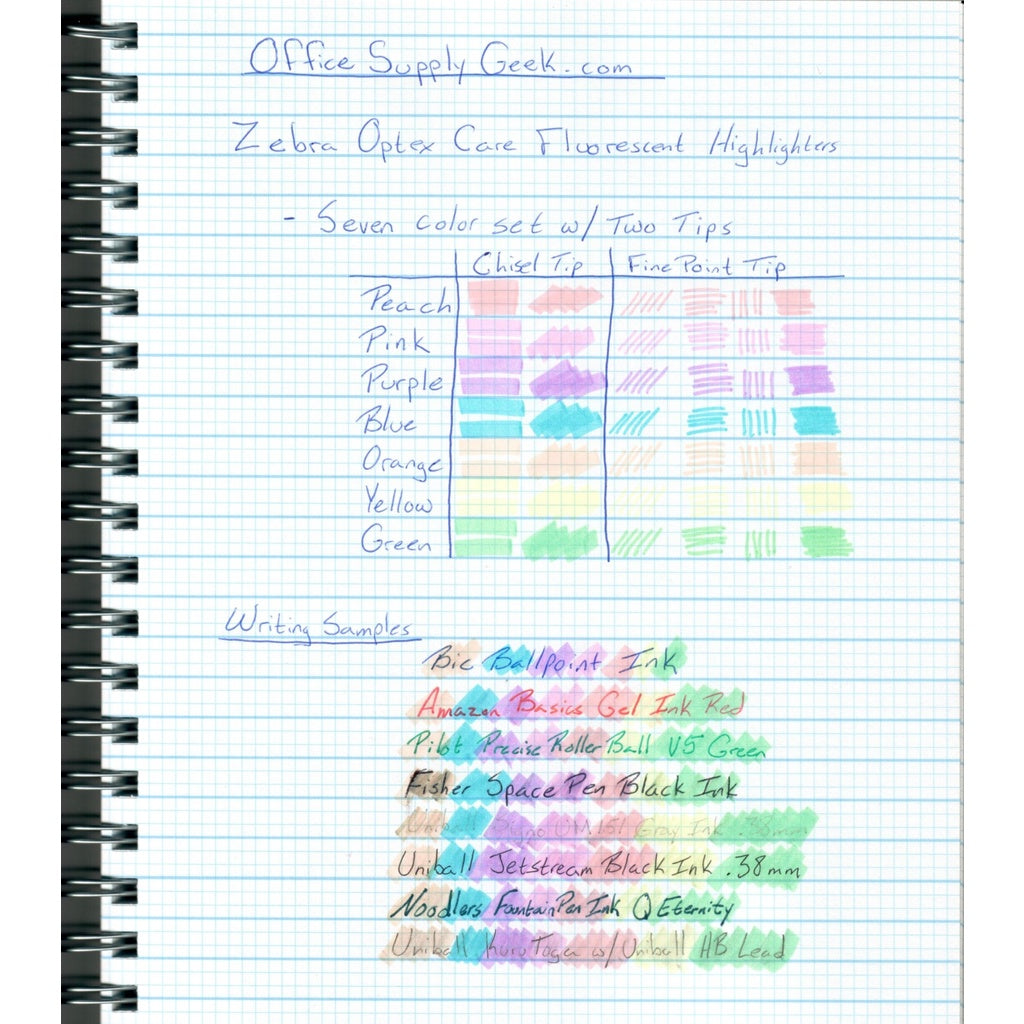 Office Supply Geek.com
Zebra Optex Care Fluorescent Highlighters
- Seven color set w/ Two Tips
Chisel Tip Fine Point Tip
Peach
Pink
Purple
Blue
Orange
Yellow
Green
Writing Samples
Bic Ballpoint Ink
Amazon Basics Gel Ink Red
Pilot Precise Roller Ball V5 Green
Fisher Space Pen Black Ink
Uniball Signo UM151 Gray Ink .38mm
Uniball Jetstream Black Ink .38mm
Noodlers Fountain Pen Ink Q Eternity
Uniball Kuru Toga w/ Uniball HB Lead